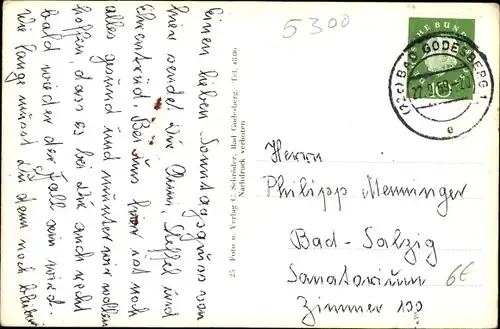 5300
Einen lieben Sonntagsgruss von
hier sendet Dir Steffel und
Bei uns hier ist noch
alles gesund und munter wir wollen
hoffen, dass es bei Dir auch recht
bald wieder der Fall sein wird.
Wie lange musst Du denn noch bleiben
25 Foto u. Verlag C. Schröder, Bad Godesberg. Tel. 4806
Nachdruck verboten
(22c) BAD GODESBERG 1
e
10
Herrn
Philipp Menninger
Bad-Salzig
Sanatorium
Zimmer 100
6€